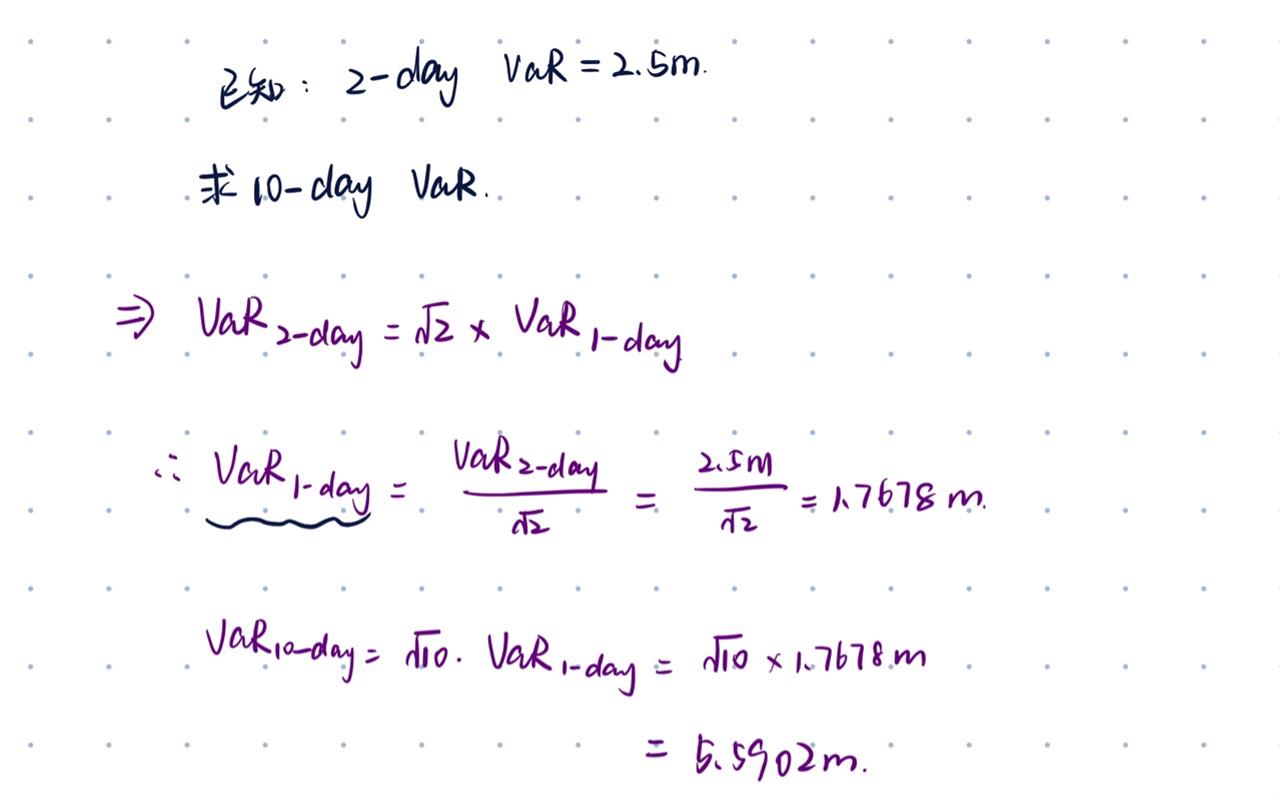 已知: 2-day VaR = 2.5m.
求 10-day VaR.
⇒ VaR 2-day = √2 × VaR 1-day
∴ VaR 1-day = VaR 2-day / √2 = 2.5m / √2 = 1.7678 m.
VaR 10-day = √10 · VaR 1-day = √10 × 1.7678 m
= 5.5902 m.